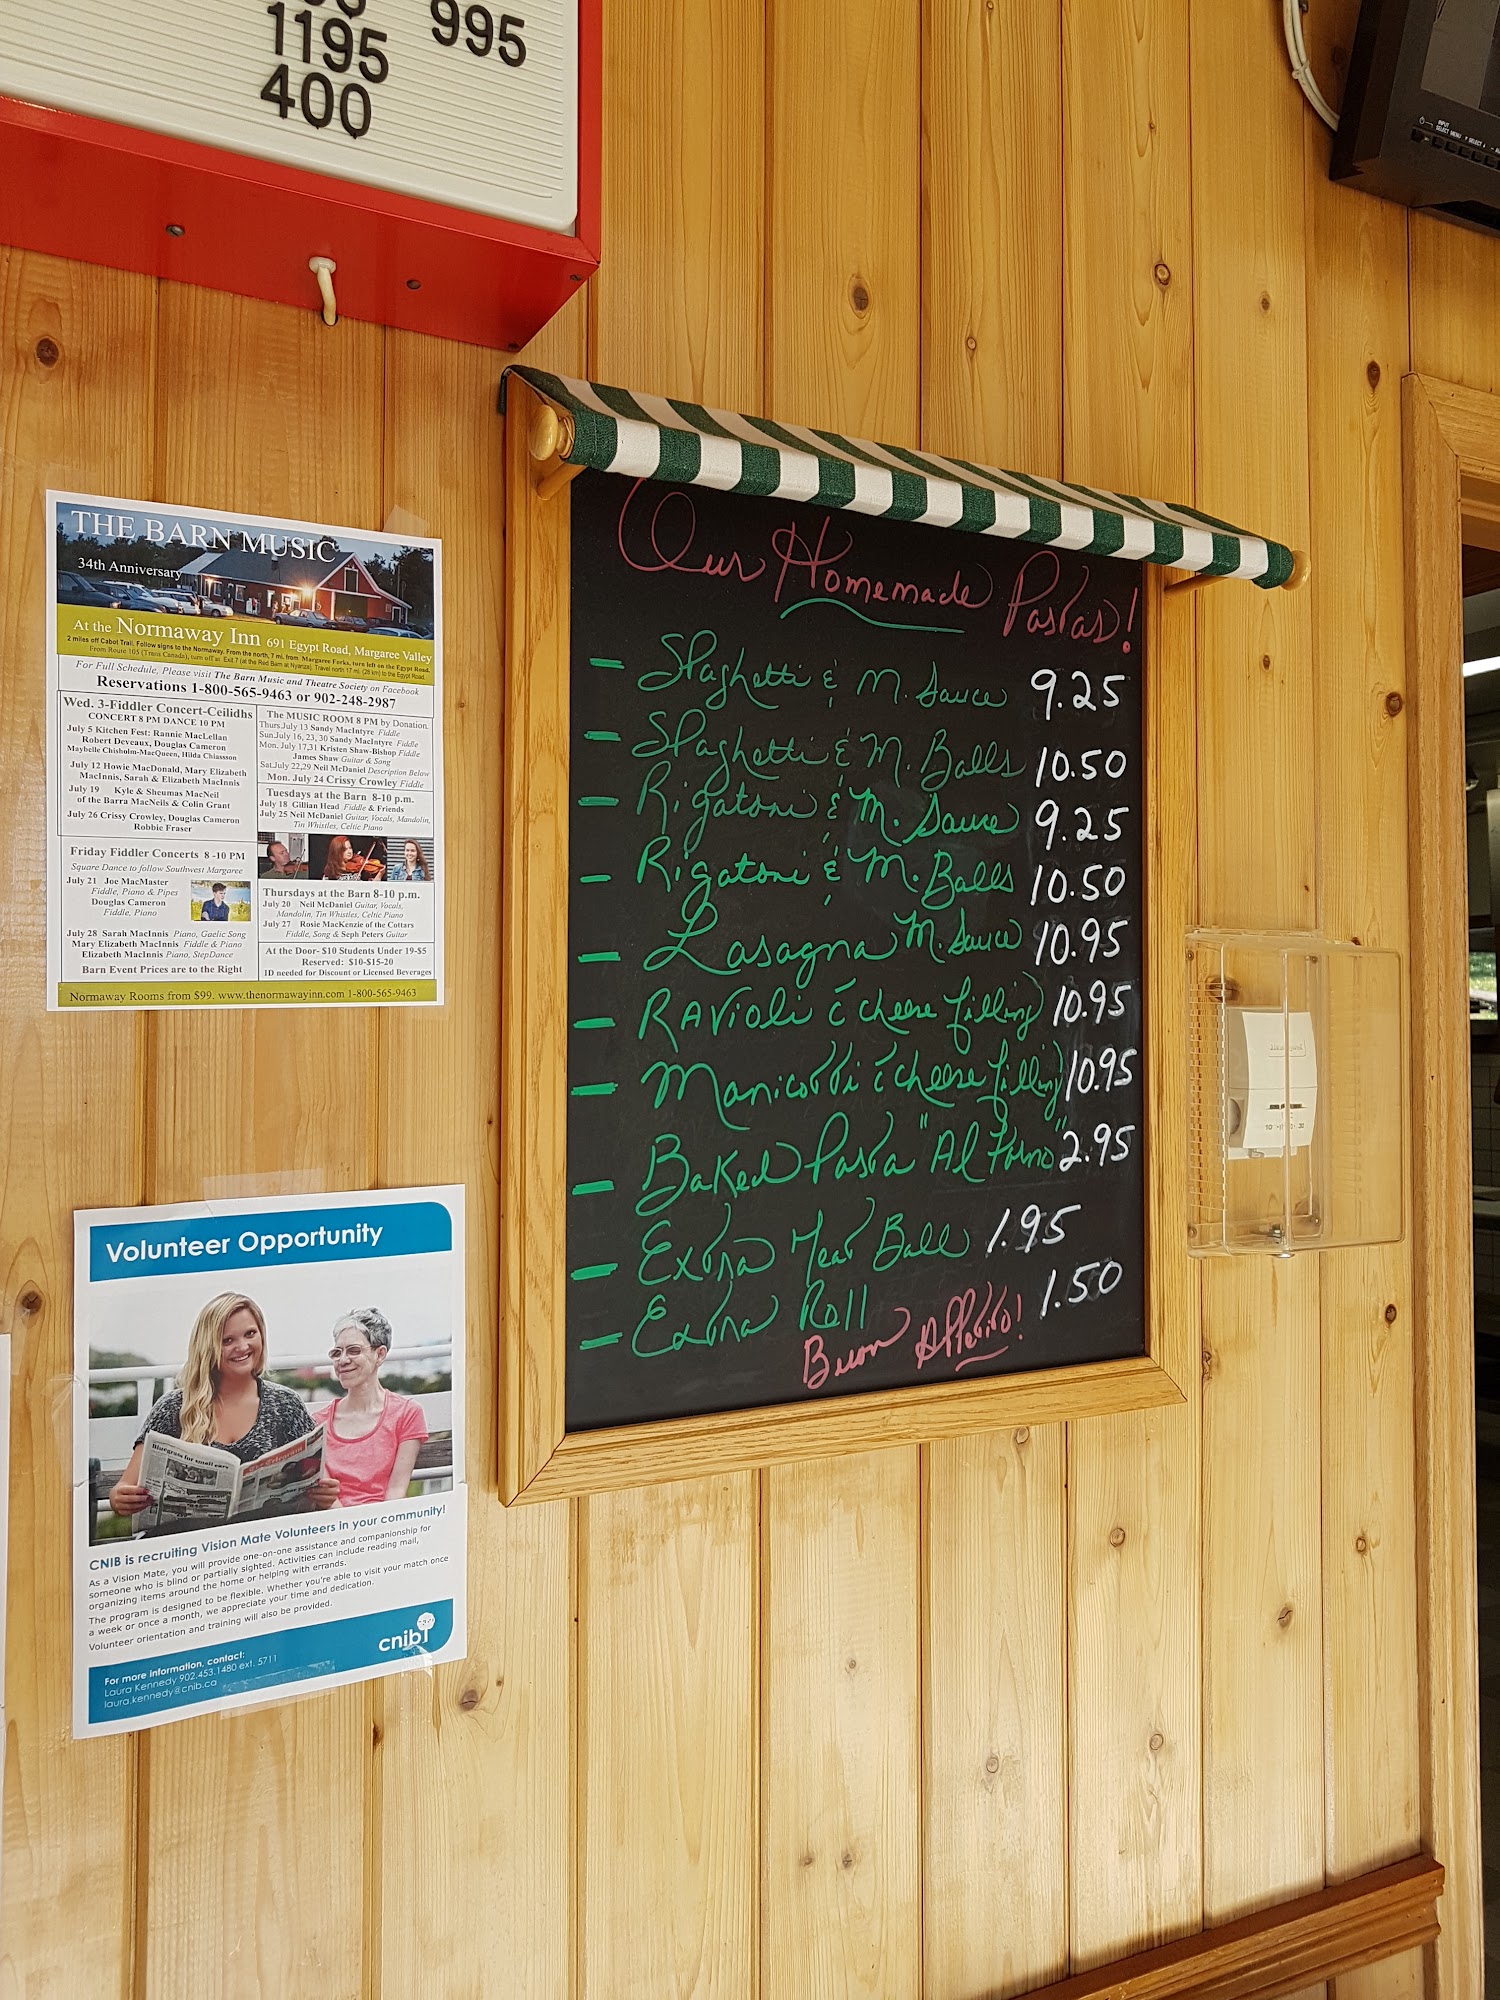 995
1195
400
INPUT
SELECT MENU ▼ SELECT ▲
THE BARN MUSIC
34th Anniversary
At the Normaway Inn 691 Egypt Road, Margaree Valley
2 miles off Cabot Trail, Follow signs to the Normaway. From the north, 7 mi. from Margaree Forks, turn left on the Egypt Road.
From Route 105 (Trans Canada), turn off at Exit 7 (at the Red Barn at Nyanza). Travel north 17 mi. (28 km) to the Egypt Road.
For Full Schedule, Please visit The Barn Music and Theatre Society on Facebook
Reservations 1-800-565-9463 or 902-248-2987
Wed. 3-Fiddler Concert-Ceilidhs
CONCERT 8 PM DANCE 10 PM
July 5 Kitchen Fest: Rannie MacLellan
Robert Deveaux, Douglas Cameron
Maybelle Chisholm-MacQueen, Hilda Chiassson
July 12 Howie MacDonald, Mary Elizabeth
MacInnis, Sarah & Elizabeth MacInnis
July 19 Kyle & Sheumas MacNeil
of the Barra MacNeils & Colin Grant
July 26 Crissy Crowley, Douglas Cameron
Robbie Fraser
Friday Fiddler Concerts 8 -10 PM
Square Dance to follow Southwest Margaree
July 21 Joe MacMaster
Fiddle, Piano & Pipes
Douglas Cameron
Fiddle, Piano
July 28 Sarah MacInnis Piano, Gaelic Song
Mary Elizabeth MacInnis Fiddle & Piano
Elizabeth MacInnis Piano, StepDance
Barn Event Prices are to the Right
The MUSIC ROOM 8 PM by Donation.
Thurs.July 13 Sandy MacIntyre Fiddle
Sun.July 16, 23, 30 Sandy MacIntyre Fiddle
Mon. July 17,31 Kristen Shaw-Bishop Fiddle
James Shaw Guitar & Song
Sat.July 22,29 Neil McDaniel Description Below
Mon. July 24 Crissy Crowley Fiddle
Tuesdays at the Barn 8-10 p.m.
July 18 Gillian Head Fiddle & Friends
July 25 Neil McDaniel Guitar, Vocals, Mandolin,
Tin Whistles, Celtic Piano
Thursdays at the Barn 8-10 p.m.
July 20 Neil McDaniel Guitar, Vocals,
Mandolin, Tin Whistles, Celtic Piano
July 27 Rosie MacKenzie of the Cottars
Fiddle, Song & Seph Peters Guitar
At the Door- $10 Students Under 19-$5
Reserved: $10-$15-20
ID needed for Discount or Licensed Beverages
Normaway Rooms from $99. www.thenormawayinn.com 1-800-565-9463
Our Homemade Pastas!
- Spaghetti & M. Sauce 9.25
- Spaghetti & M. Balls 10.50
- Rigatoni & M. Sauce 9.25
- Rigatoni & M. Balls 10.50
- Lasagna M. Sauce 10.95
- Ravioli c̄ cheese filling 10.95
- Manicotti c̄ cheese filling 10.95
- Baked Pasta "Al Forno" 2.95
- Extra Meat Ball 1.95
- Extra Roll 1.50
Buon Appetito!
Volunteer Opportunity
Bluegrass for small ears
CNIB is recruiting Vision Mate Volunteers in your community!
As a Vision Mate, you will provide one-on-one assistance and companionship for
someone who is blind or partially sighted. Activities can include reading mail,
organizing items around the home or helping with errands.
The program is designed to be flexible. Whether you're able to visit your match once
a week or once a month, we appreciate your time and dedication.
Volunteer orientation and training will also be provided.
cnib
For more information, contact:
Laura Kennedy 902.453.1480 ext. 5711
laura.kennedy@cnib.ca